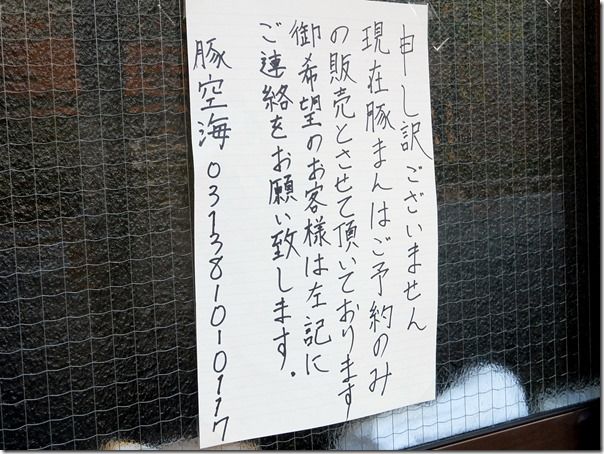 申し訳ございません
現在豚まんはご予約のみ
の販売とさせて頂いております
御希望のお客様は左記に
ご連絡をお願い致します.
豚空海 03|3810|0117